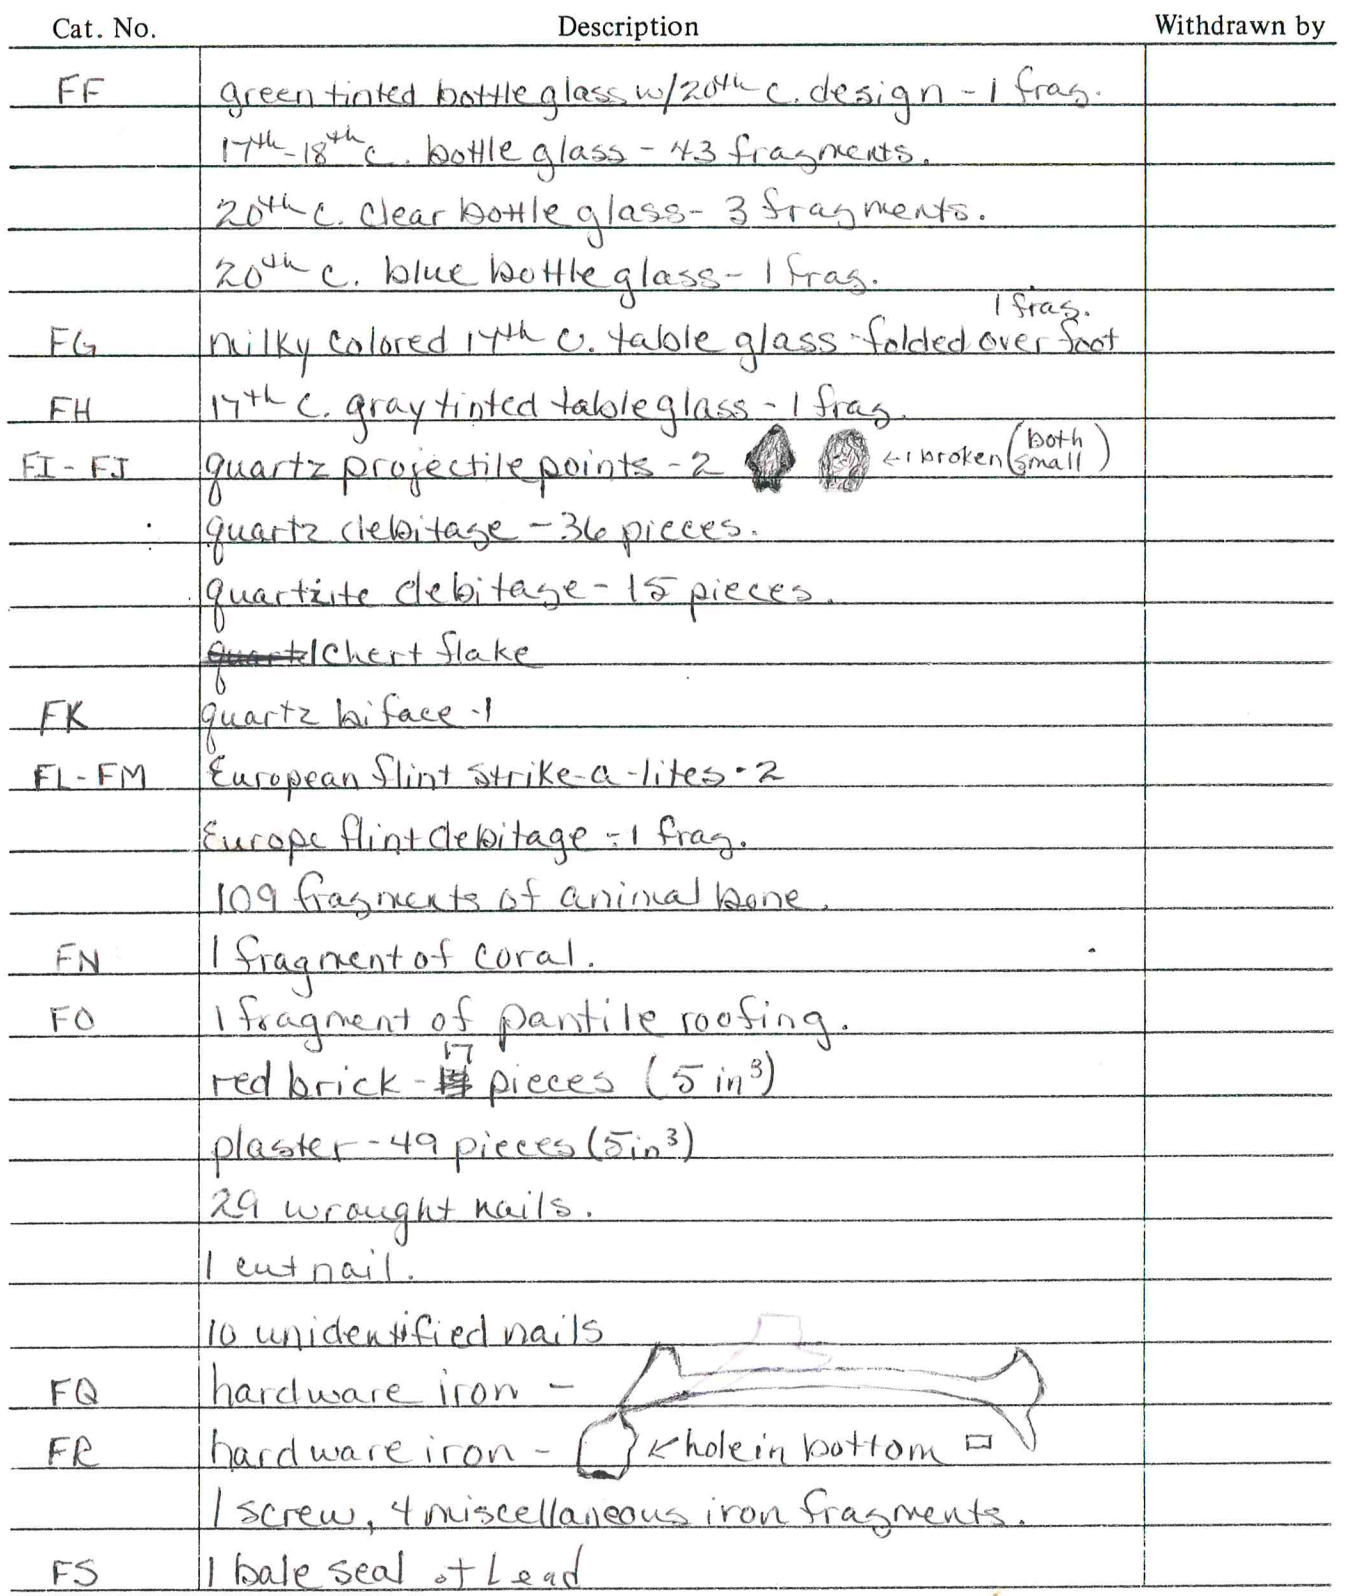 Cat. No. Description Withdrawn by
FF green tinted bottle glass w/20th c. design - 1 frag.
17th-18th c. bottle glass - 43 fragments.
20th c. clear bottle glass - 3 fragments.
20th c. blue bottle glass - 1 frag.
1 frag.
FG milky colored 17th c. table glass - folded over foot
FH 17th c. gray tinted table glass - 1 frag.
FI - FJ quartz projectile points - 2 ← 1 broken (both small)
quartz debitage - 36 pieces.
quartzite debitage - 15 pieces.
quartz 1 chert flake
FK quartz biface - 1
FL - FM European flint strike-a-lites - 2
Europe flint debitage - 1 frag.
109 fragments of animal bone.
FN 1 fragment of coral.
FO 1 fragment of pantile roofing.
red brick - 17 pieces (5 in³)
plaster - 49 pieces (5 in³)
29 wrought nails.
1 cut nail.
10 unidentified nails
FQ hardware iron -
FR hardware iron - ← hole in bottom
1 screw, 4 miscellaneous iron fragments.
FS 1 bale seal of Lead